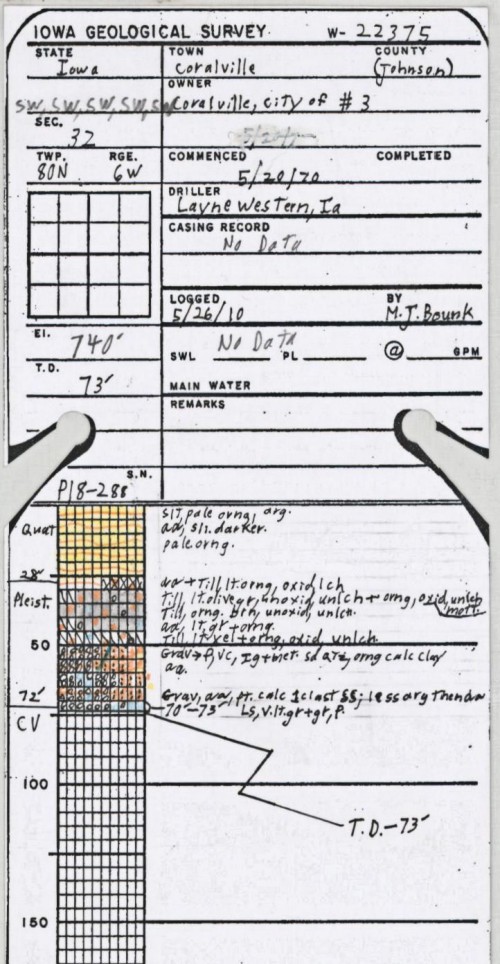 IOWA GEOLOGICAL SURVEY W- 22375
STATE TOWN COUNTY
Iowa Coralville (Johnson)
OWNER
SW, SW, SW, SW, SW Coralville, City of #3
SEC.
32
TWP. RGE. COMMENCED COMPLETED
80N 6W 5/20/70
DRILLER
Layne Western, Ia
CASING RECORD
No Data
LOGGED BY
5/26/10 M.J. Bounk
El. 740'
SWL No Data PL @ GPM
T.D.
73' MAIN WATER
REMARKS
S.N.
P18-288
slt, pale orng, arg.
Quat aa, sli. darker.
pale orng.
28' aa + Till, lt. orng, oxid, lch
Pleist. Till, lt. olive gr, unoxid, unlch + orng, oxid, unlch
mott.
Till, orng. brn, unoxid, unlch.
aa, lt. gr + orng.
Till, lt. yel + orng, oxid, unlch.
50 Grav → f, vc, Ig + met. sd, orng calc clay
aa.
72' Grav, aa, pt. calc clast ss; less arg than aa
70'-73' Ls, v. lt. gr + gr, P.
CV
100
T.D.-73'
150